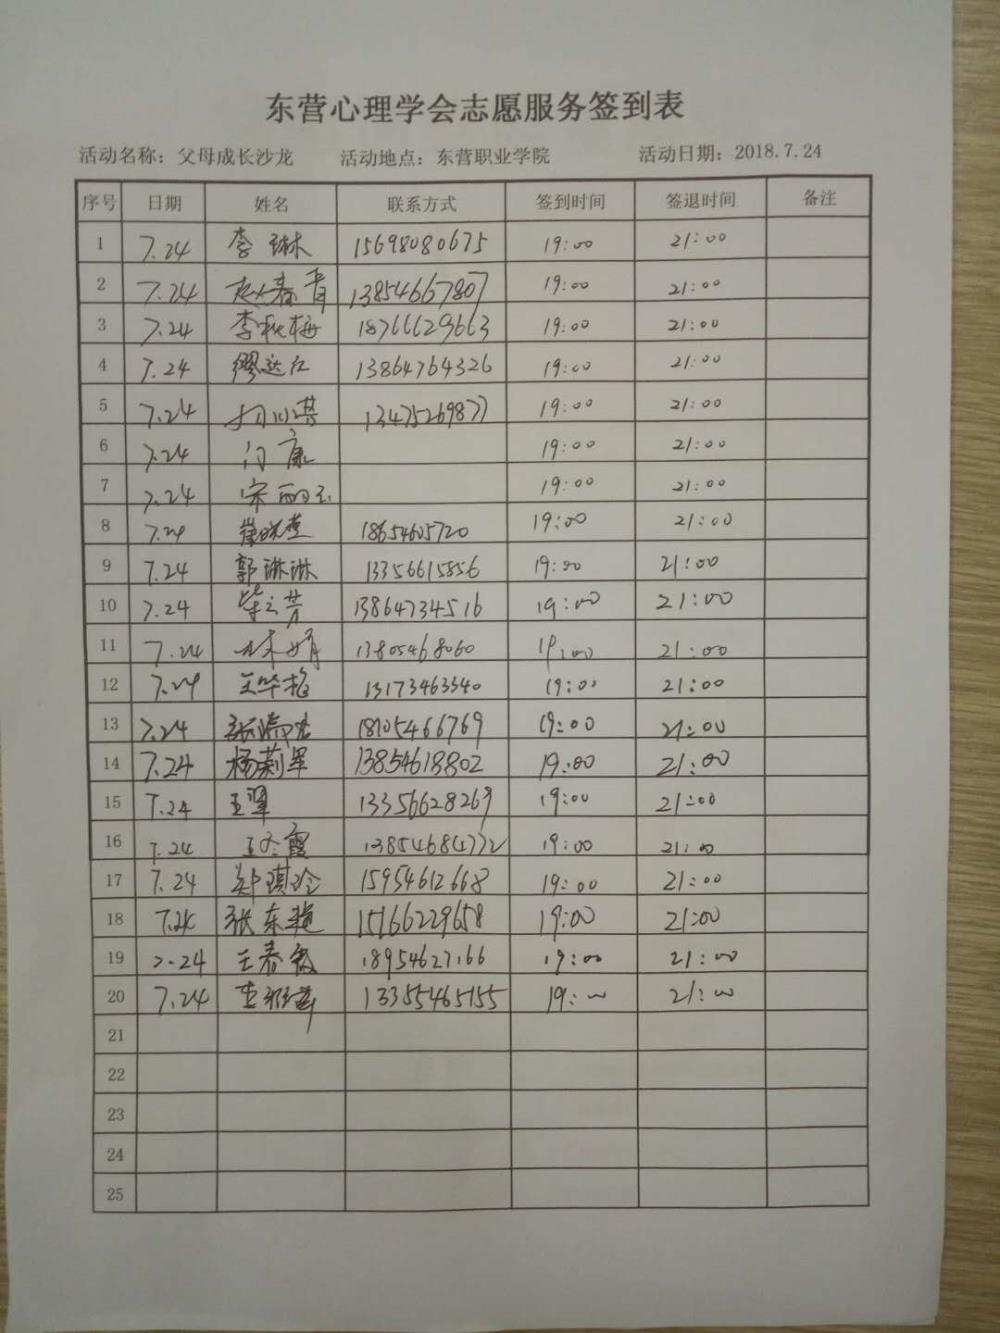 东营心理学会志愿服务签到表
活动名称：父母成长沙龙 活动地点：东营职业学院 活动日期：2018.7.24
序号 日期 姓名 联系方式 签到时间 签退时间 备注
1 7.24 李琳 15698080675 19:00 21:00
2 7.24 赵春青 13854667807 19:00 21:00
3 7.24 李秋梅 18766629663 19:00 21:00
4 7.24 缪运红 13864764326 19:00 21:00
5 7.24 13475269877 19:00 21:00
6 7.24 门康 19:00 21:00
7 7.24 宋丽玉 19:00 21:00
8 7.24 崔晓燕 18654605720 19:00 21:00
9 7.24 郭琳琳 13356615856 19:00 21:00
10 7.24 毕云芳 13864734516 19:00 21:00
11 7.24 林娟 13805468060 19:00 21:00
12 7.24 王华梅 13173463340 19:00 21:00
13 7.24 18705466769 19:00 21:00
14 7.24 杨莉军 13854618802 19:00 21:00
15 7.24 王翠 13356628269 19:00 21:00
16 7.24 王冬霞 19:00 21:00
17 7.24 郑琪玲 15954612668 19:00 21:00
18 7.24 张东艳 15166229658 19:00 21:00
19 7.24 王春敏 18954627166 19:00 21:00
20 7.24 13355465155 19:00 21:00
21
22
23
24
25